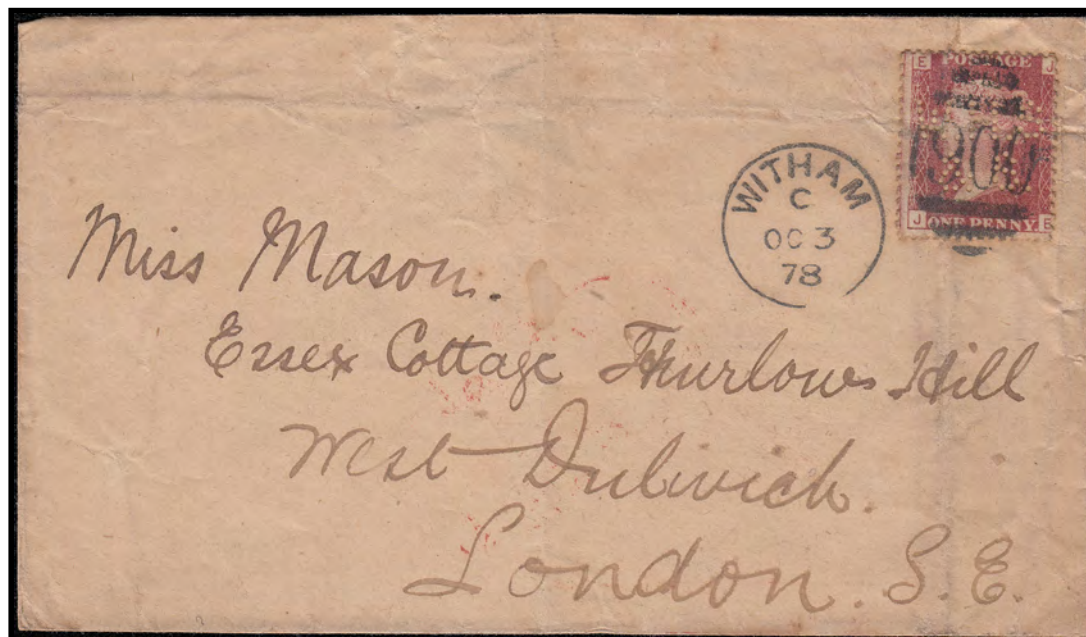 E POSTAGE J
900
J ONE PENNY E
WITHAM
C
OC 3
78
Miss Mason.
Essex Cottage Thurlow Hill
West Dulwich.
London. S.E.